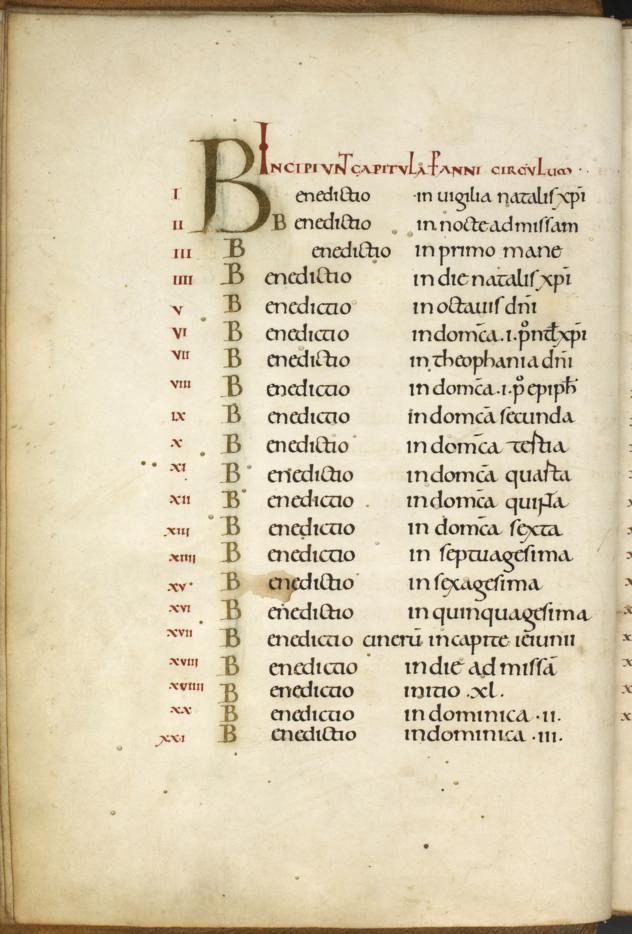 INCIPIUNT CAPITULA P ANNI CIRCULUM
I Benedictio in uigilia natalis xp̄i
II Benedictio in nocte ad missam
III Benedictio in primo mane
IIII Benedictio in die natalis xp̄i
V Benedictio in octauis dn̄i
VI Benedictio in domc̄a .i. p̊ nat̄ xp̄i
VII Benedictio in theophania dn̄i
VIII Benedictio in domc̄a .i. p̊ epiph̄
IX Benedictio in domc̄a secunda
X Benedictio in domc̄a tertia
XI Benedictio in domc̄a quarta
XII Benedictio in domc̄a quinta
XIII Benedictio in domc̄a sexta
XIIII Benedictio in septuagesima
XV Benedictio in sexagesima
XVI Benedictio in quinquagesima
XVII Benedictio cinerū in capite ieiunii
XVIII Benedictio in die ad missā
XVIIII Benedictio initio .xl.
XX Benedictio in dominica .ii.
XXI Benedictio in dominica .iii.